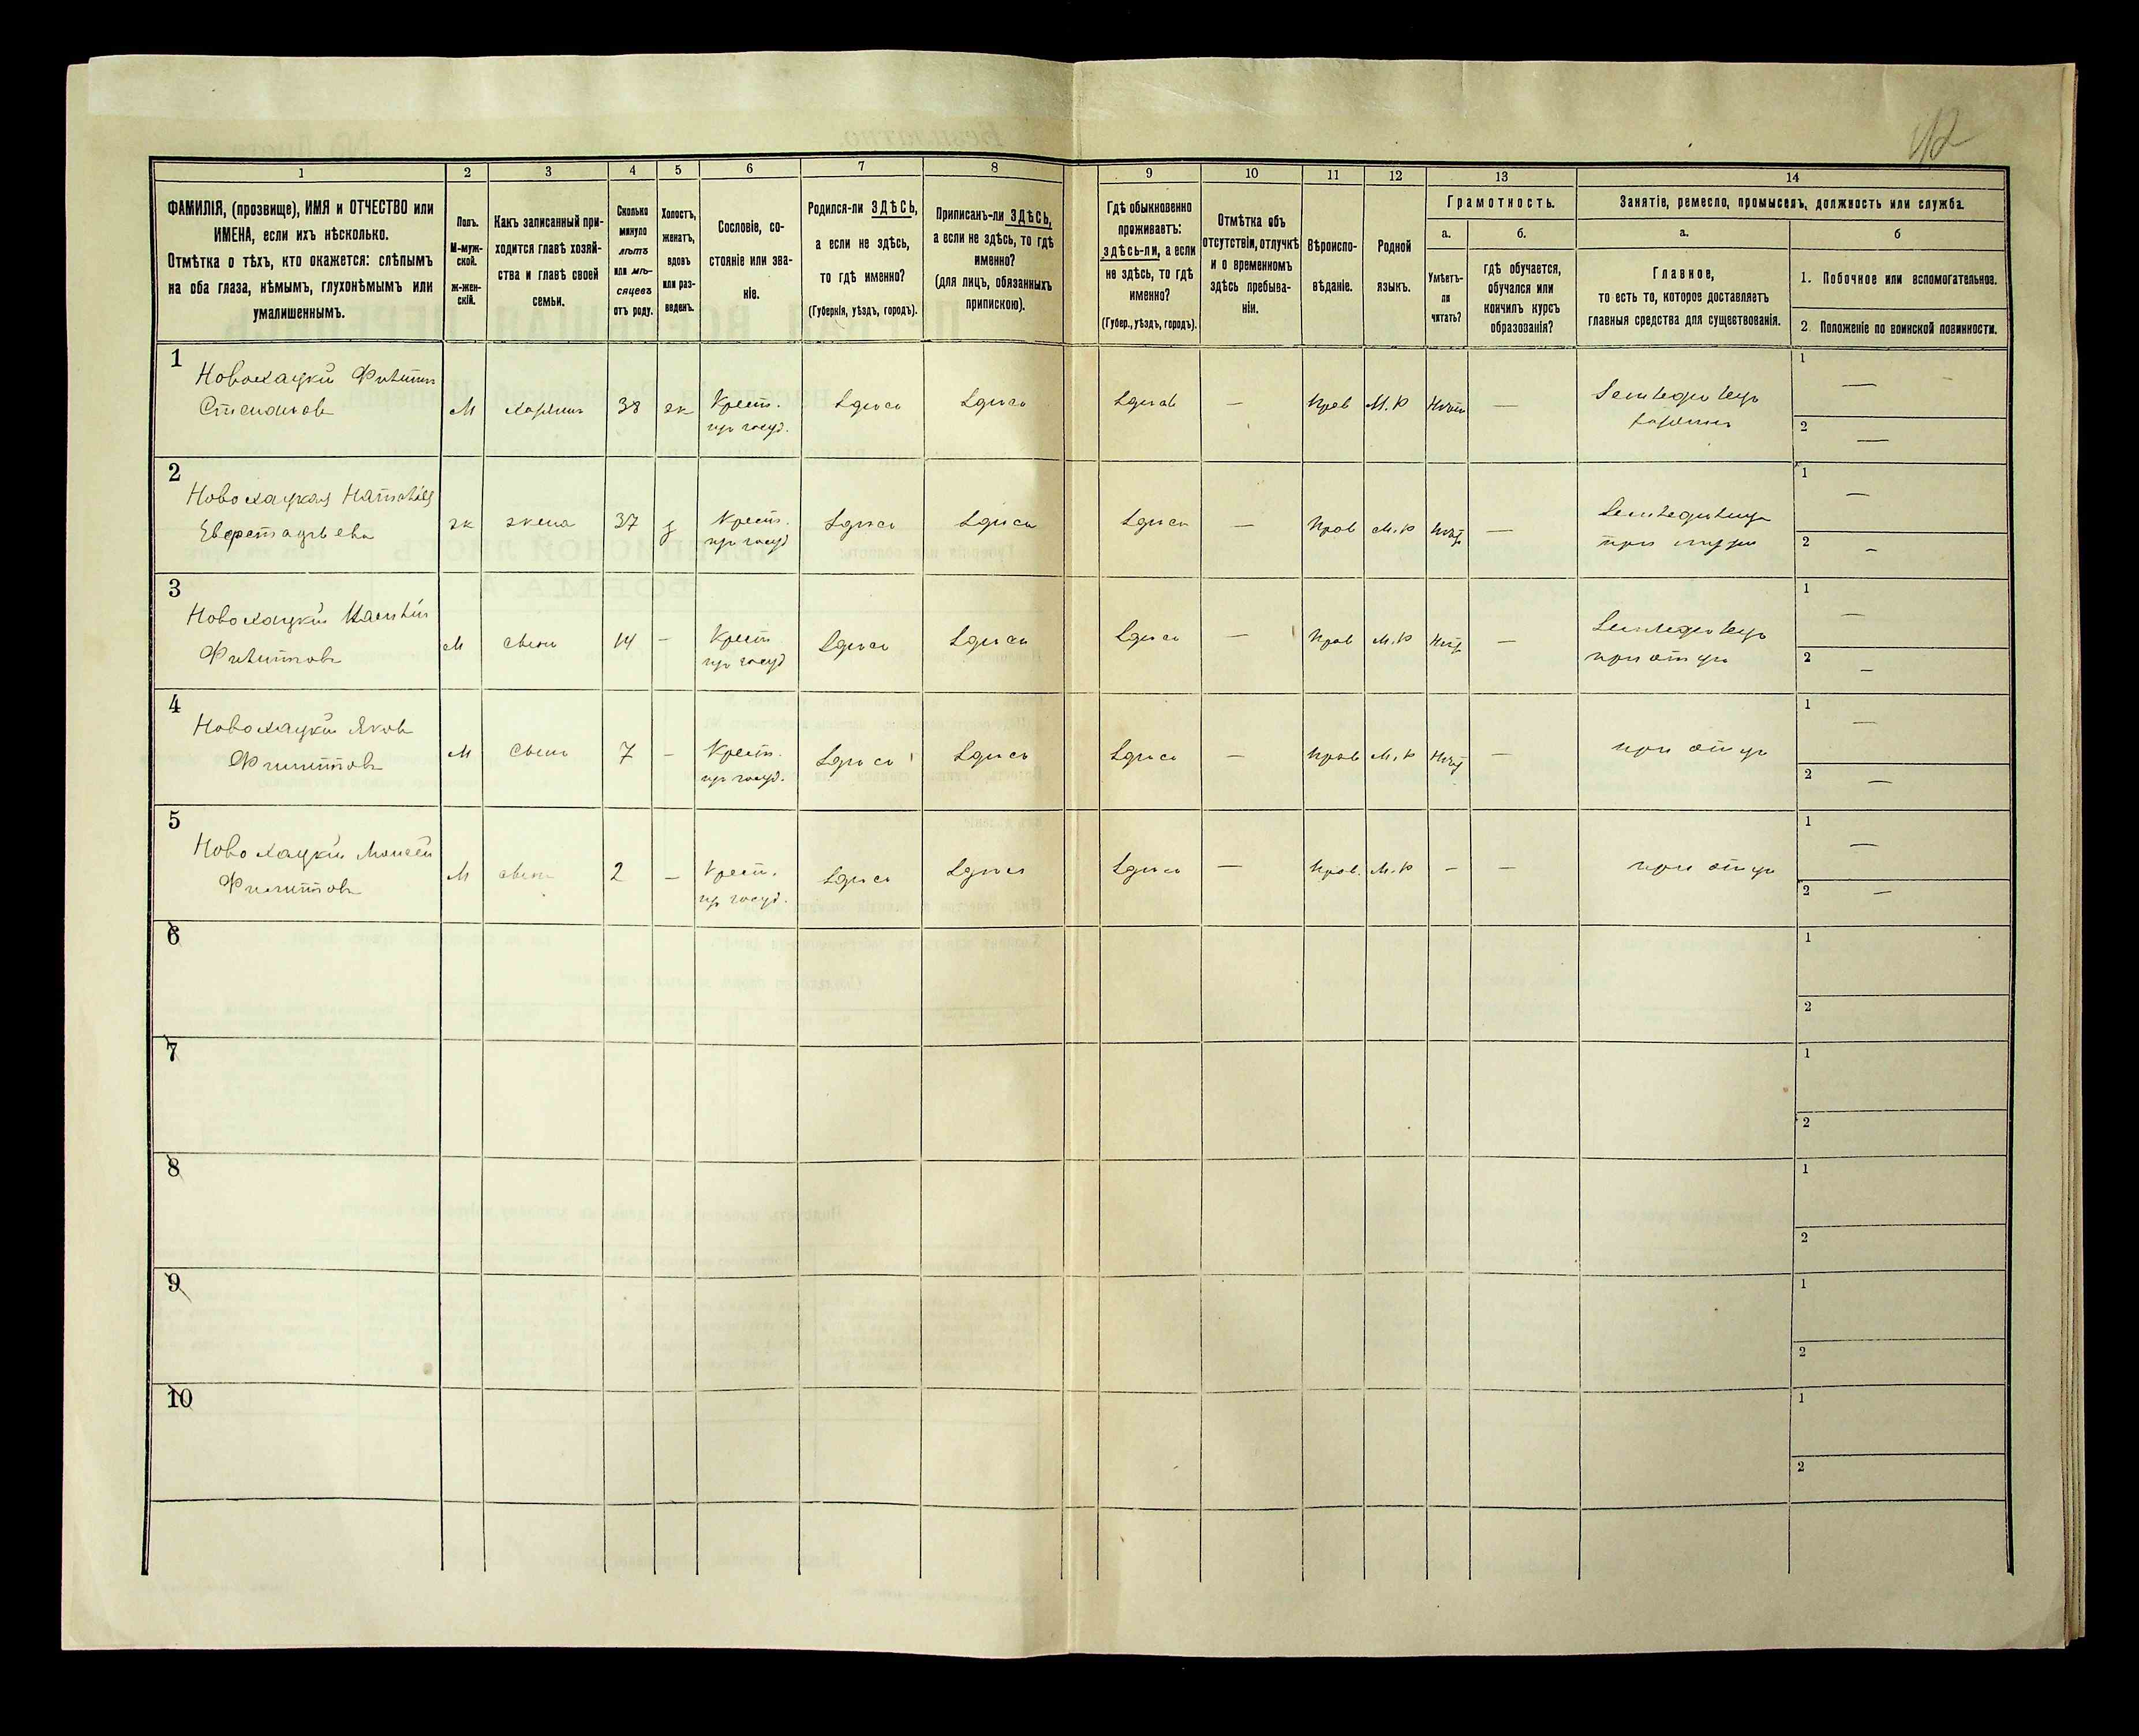 42
1 2 3 4 5 6 7 8 9 10 11 12 13 14
ФАМИЛІЯ, (прозвище), ИМЯ и ОТЧЕСТВО или
ИМЕНА, если ихъ нѣсколько.
Отмѣтка о тѣхъ, кто окажется: слѣпымъ
на оба глаза, нѣмымъ, глухонѣмымъ или
умалишеннымъ.
Полъ.
М-муж-
ской.
ж-жен-
скій.
Какъ записанный при-
ходится главѣ хозяй-
ства и главѣ своей
семьи.
Сколько
минуло
лѣтъ
или мѣ-
сяцевъ
отъ роду.
Холостъ,
женатъ,
вдовъ
или раз-
веденъ.
Сословіе, со-
стояніе или зва-
ніе.
Родился-ли ЗДѢСЬ,
а если не здѣсь,
то гдѣ именно?
(Губернія, уѣздъ, городъ).
Приписанъ-ли ЗДѢСЬ,
а если не здѣсь, то гдѣ
именно?
(для лицъ, обязанныхъ
припискою).
Гдѣ обыкновенно
проживаетъ:
здѣсь-ли, а если
не здѣсь, то гдѣ
именно?
(Губер., уѣздъ, городъ).
Отмѣтка объ
отсутствіи, отлучкѣ
и о временномъ
здѣсь пребыва-
ніи.
Вѣроиспо-
вѣданіе.
Родной
языкъ.
Грамотность.
а.
Умѣетъ-
ли
читать?
б.
гдѣ обучается,
обучался или
кончилъ курсъ
образованія?
Занятіе, ремесло, промыселъ, должность или служба.
а.
Главное,
то есть то, которое доставляетъ
главныя средства для существованія.
б
1. Побочное или вспомогательное.
2 Положеніе по воинской повинности.
1
Новохацкій Филипп
М хозяин 38 ж Крест. Здиса Здиса Здиса — Прав М.Р — 1 —
из госуд. 2 —
2
Новохацкая Наталія
ж жена 37 з Крест. Здиса Здиса Здиса — Прав М.Р — 1 —
из госуд 2 —
3
Новохацкій
Филиппов М сын 14 — Крест Здиса Здиса Здиса — Прав М.Р — 1 —
из госуд при отцу 2 —
4
Новохацкій Яков
Филиппов М Сын 7 — Крест. Здиса Здиса Здиса — Прав М.Р — при отцу 1 —
из госуд. 2 —
5
Новохацкій Моисей
Филиппов М сын 2 — Крест. Здиса Здиса Здиса — Прав. М.Р — — при отцу 1 —
из госуд. 2 —
6 1
2
7 1
2
8 1
2
9 1
2
10 1
2